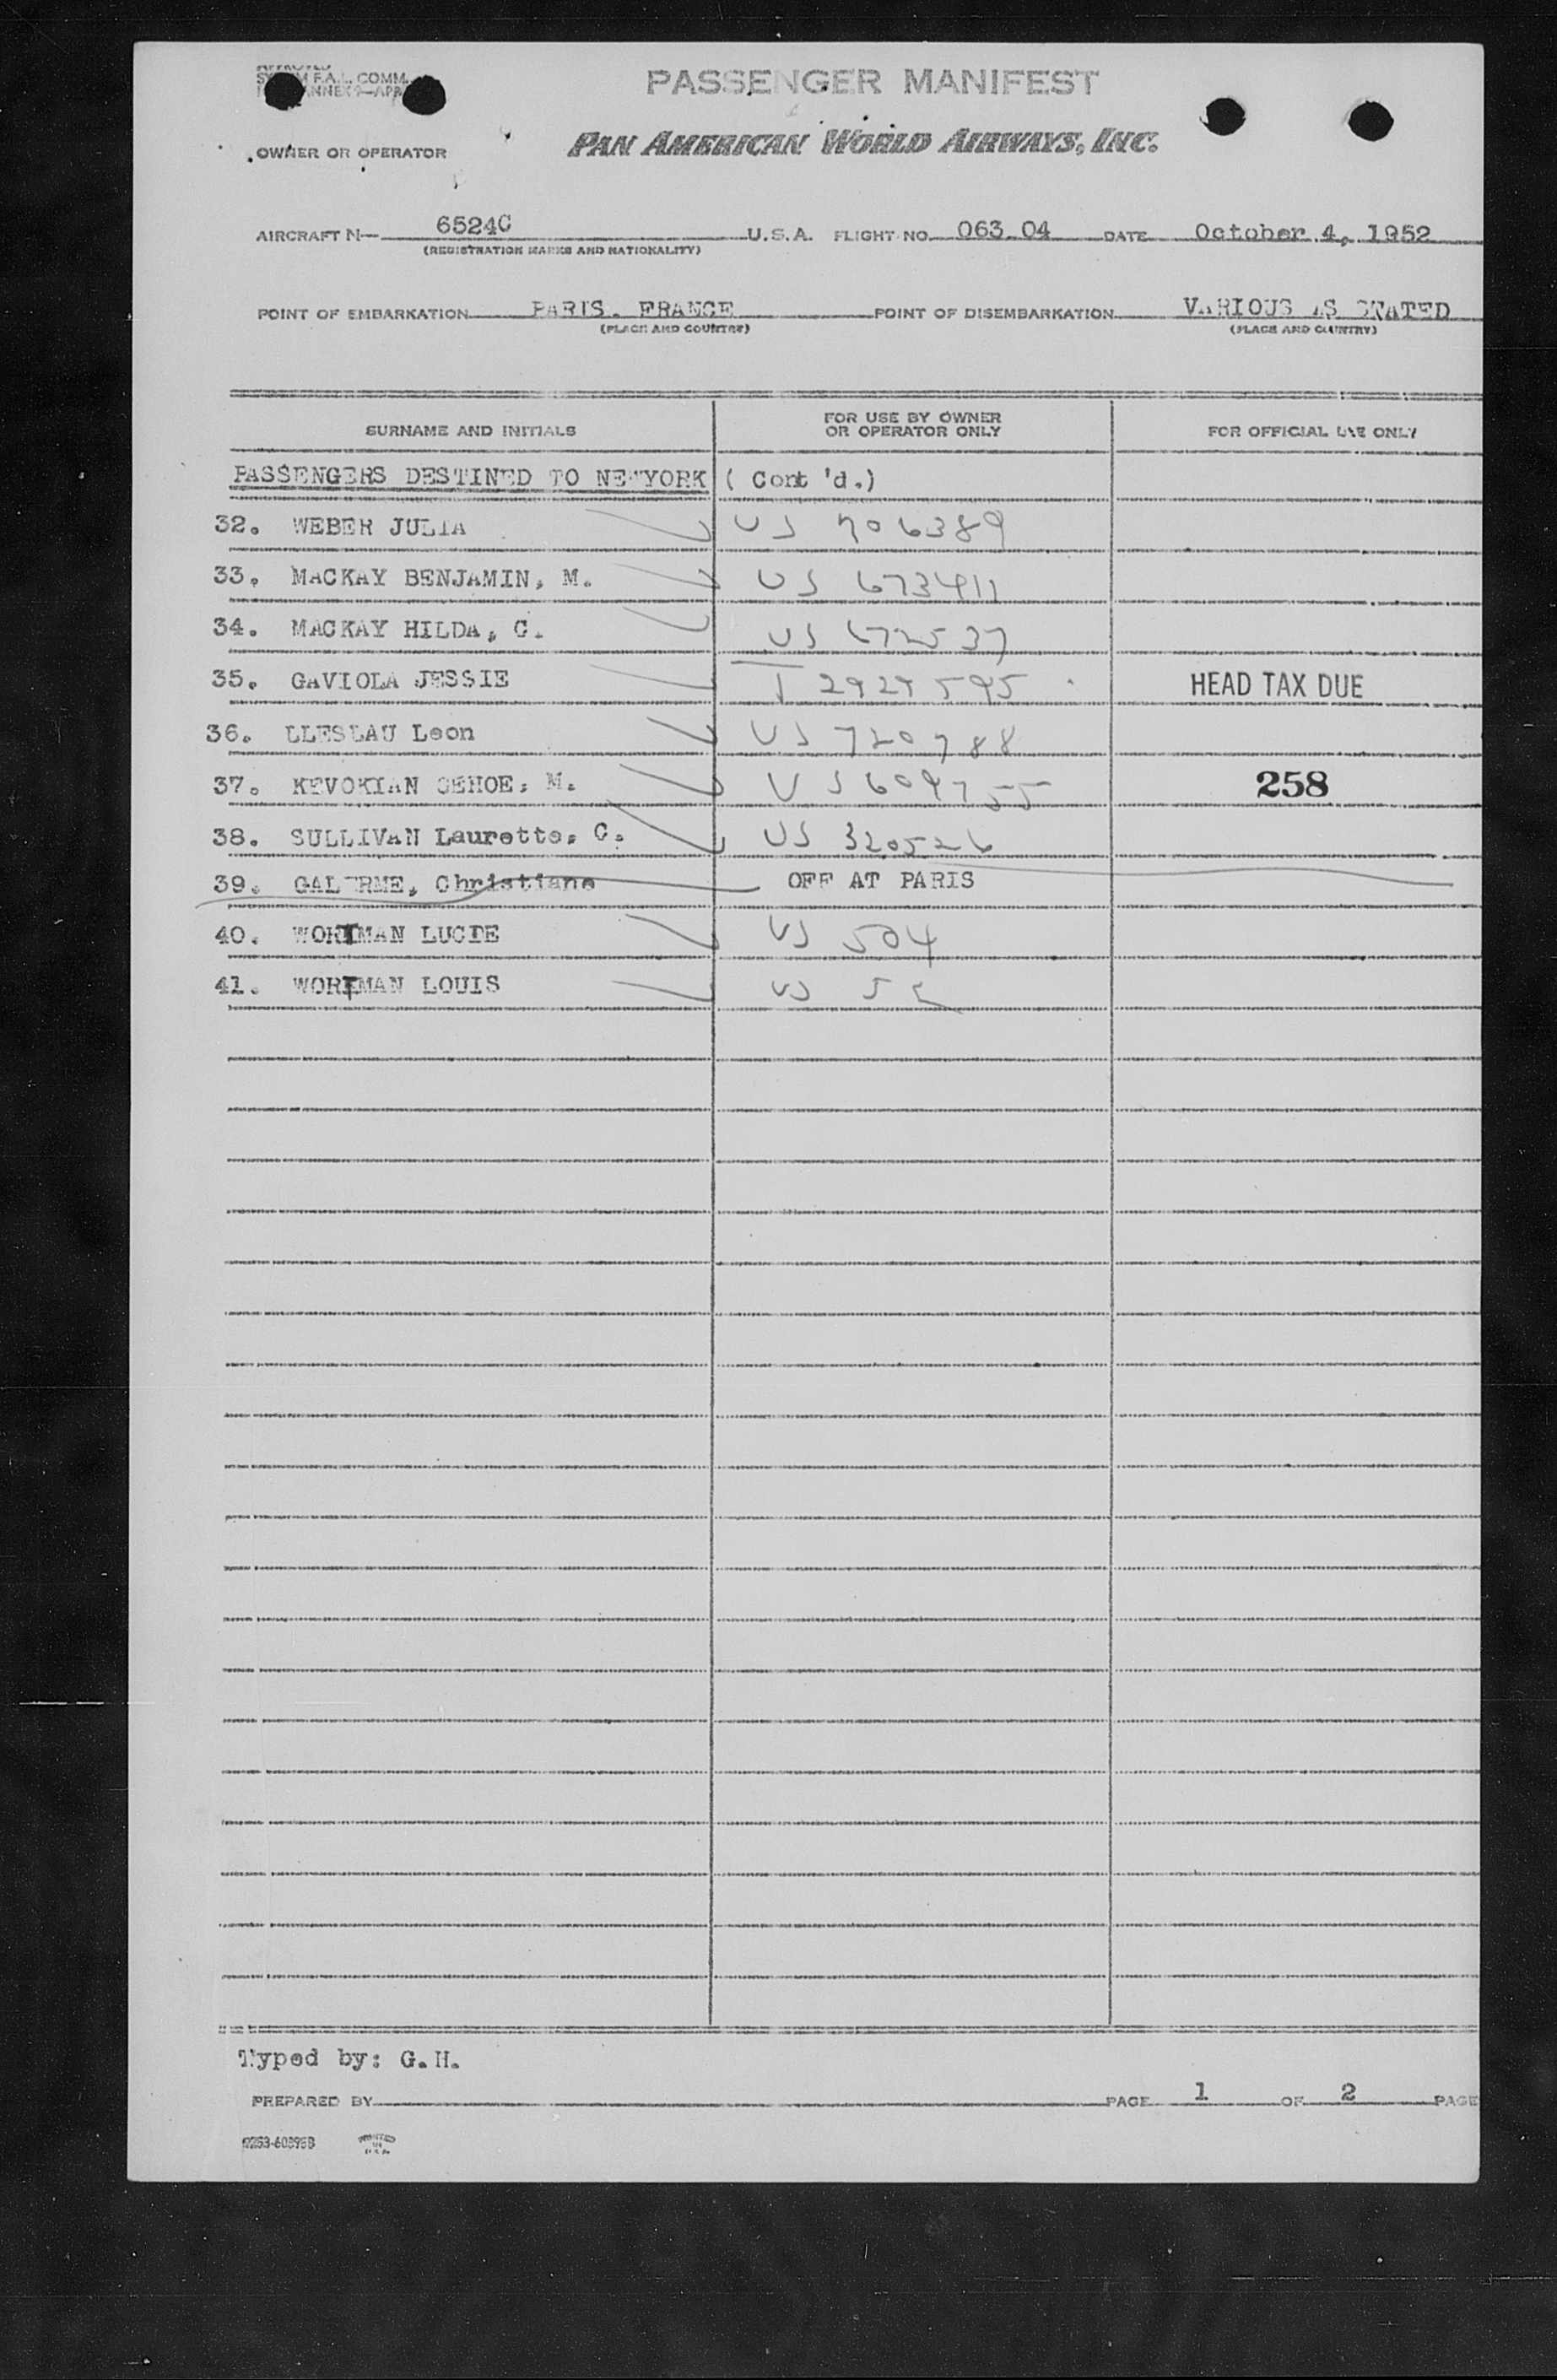 SYSTEM F.A.L. COMM.
ANNEX 9—APP.
PASSENGER MANIFEST
OWNER OR OPERATOR PAN AMERICAN WORLD AIRWAYS, INC.
AIRCRAFT N— 6524C U.S.A. FLIGHT NO. 063.04 DATE October 4, 1952
(REGISTRATION MARKS AND NATIONALITY)
POINT OF EMBARKATION PARIS. FRANCE POINT OF DISEMBARKATION VARIOUS AS STATED
(PLACE AND COUNTRY) (PLACE AND COUNTRY)
SURNAME AND INITIALS FOR USE BY OWNER OR OPERATOR ONLY FOR OFFICIAL USE ONLY
PASSENGERS DESTINED TO NEWYORK ( Cont 'd.)
32. WEBER JULIA US 706389
33. MACKAY BENJAMIN, M. US 673411
34. MACKAY HILDA, C. US 672537
35. GAVIOLA JESSIE T 2929595 HEAD TAX DUE
36. Leon US 720788
37. KEVOKIAN M. US 609755 258
38. SULLIVAN Laurette, C. US 320526
39. Christiane OFF AT PARIS
40. WORTMAN LUCIE US 504
41. WORTMAN LOUIS US
Typed by: G.H.
PREPARED BY PAGE 1 OF 2 PAGE
PRINTED
IN
U.S.A.